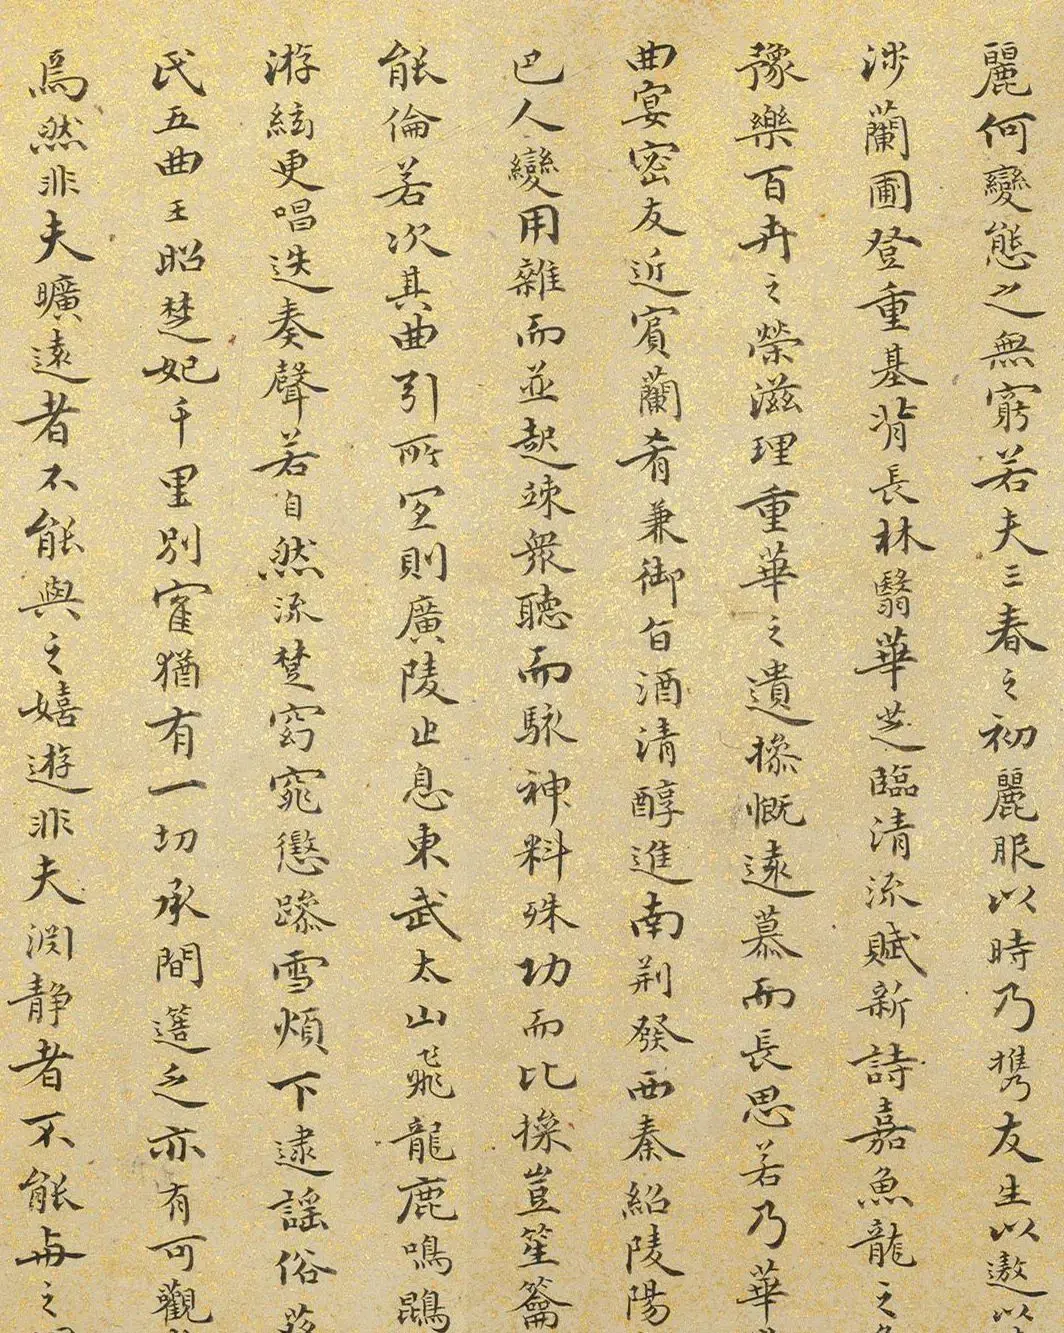 麗何變態之無窮若夫三春之初麗服以時乃携友生以遨以
涉蘭圃登重基背長林翳華芝臨清流賦新詩嘉魚龍之
豫樂百卉之榮滋理重華之遺操慨遠慕而長思若乃華
曲宴密友近賓蘭肴兼御旨酒清醇進南荆發西秦紹陵陽
巴人變用雜而並起竦衆聽而駭神料殊功而比操豈笙籥
能倫若次其曲引所宜則廣陵止息東武太山飛龍鹿鳴鵾
游絃更唱迭奏聲若自然流楚窈窕懲躁雪煩下逮謡俗蔡
氏五曲王昭楚妃千里别寉猶有一切承間簉乏亦有可觀
焉然非夫曠遠者不能與之嬉遊非夫渊静者不能与之